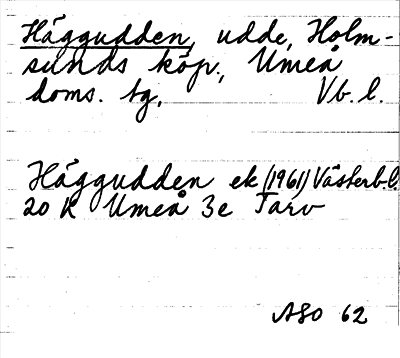 Häggudden, udde, Holm-
sunds köp., Umeå
doms. tg, Vb. l.
Häggudden ek (1961) Västerb.l.
20 K Umeå 3e Tarv
ASO 62